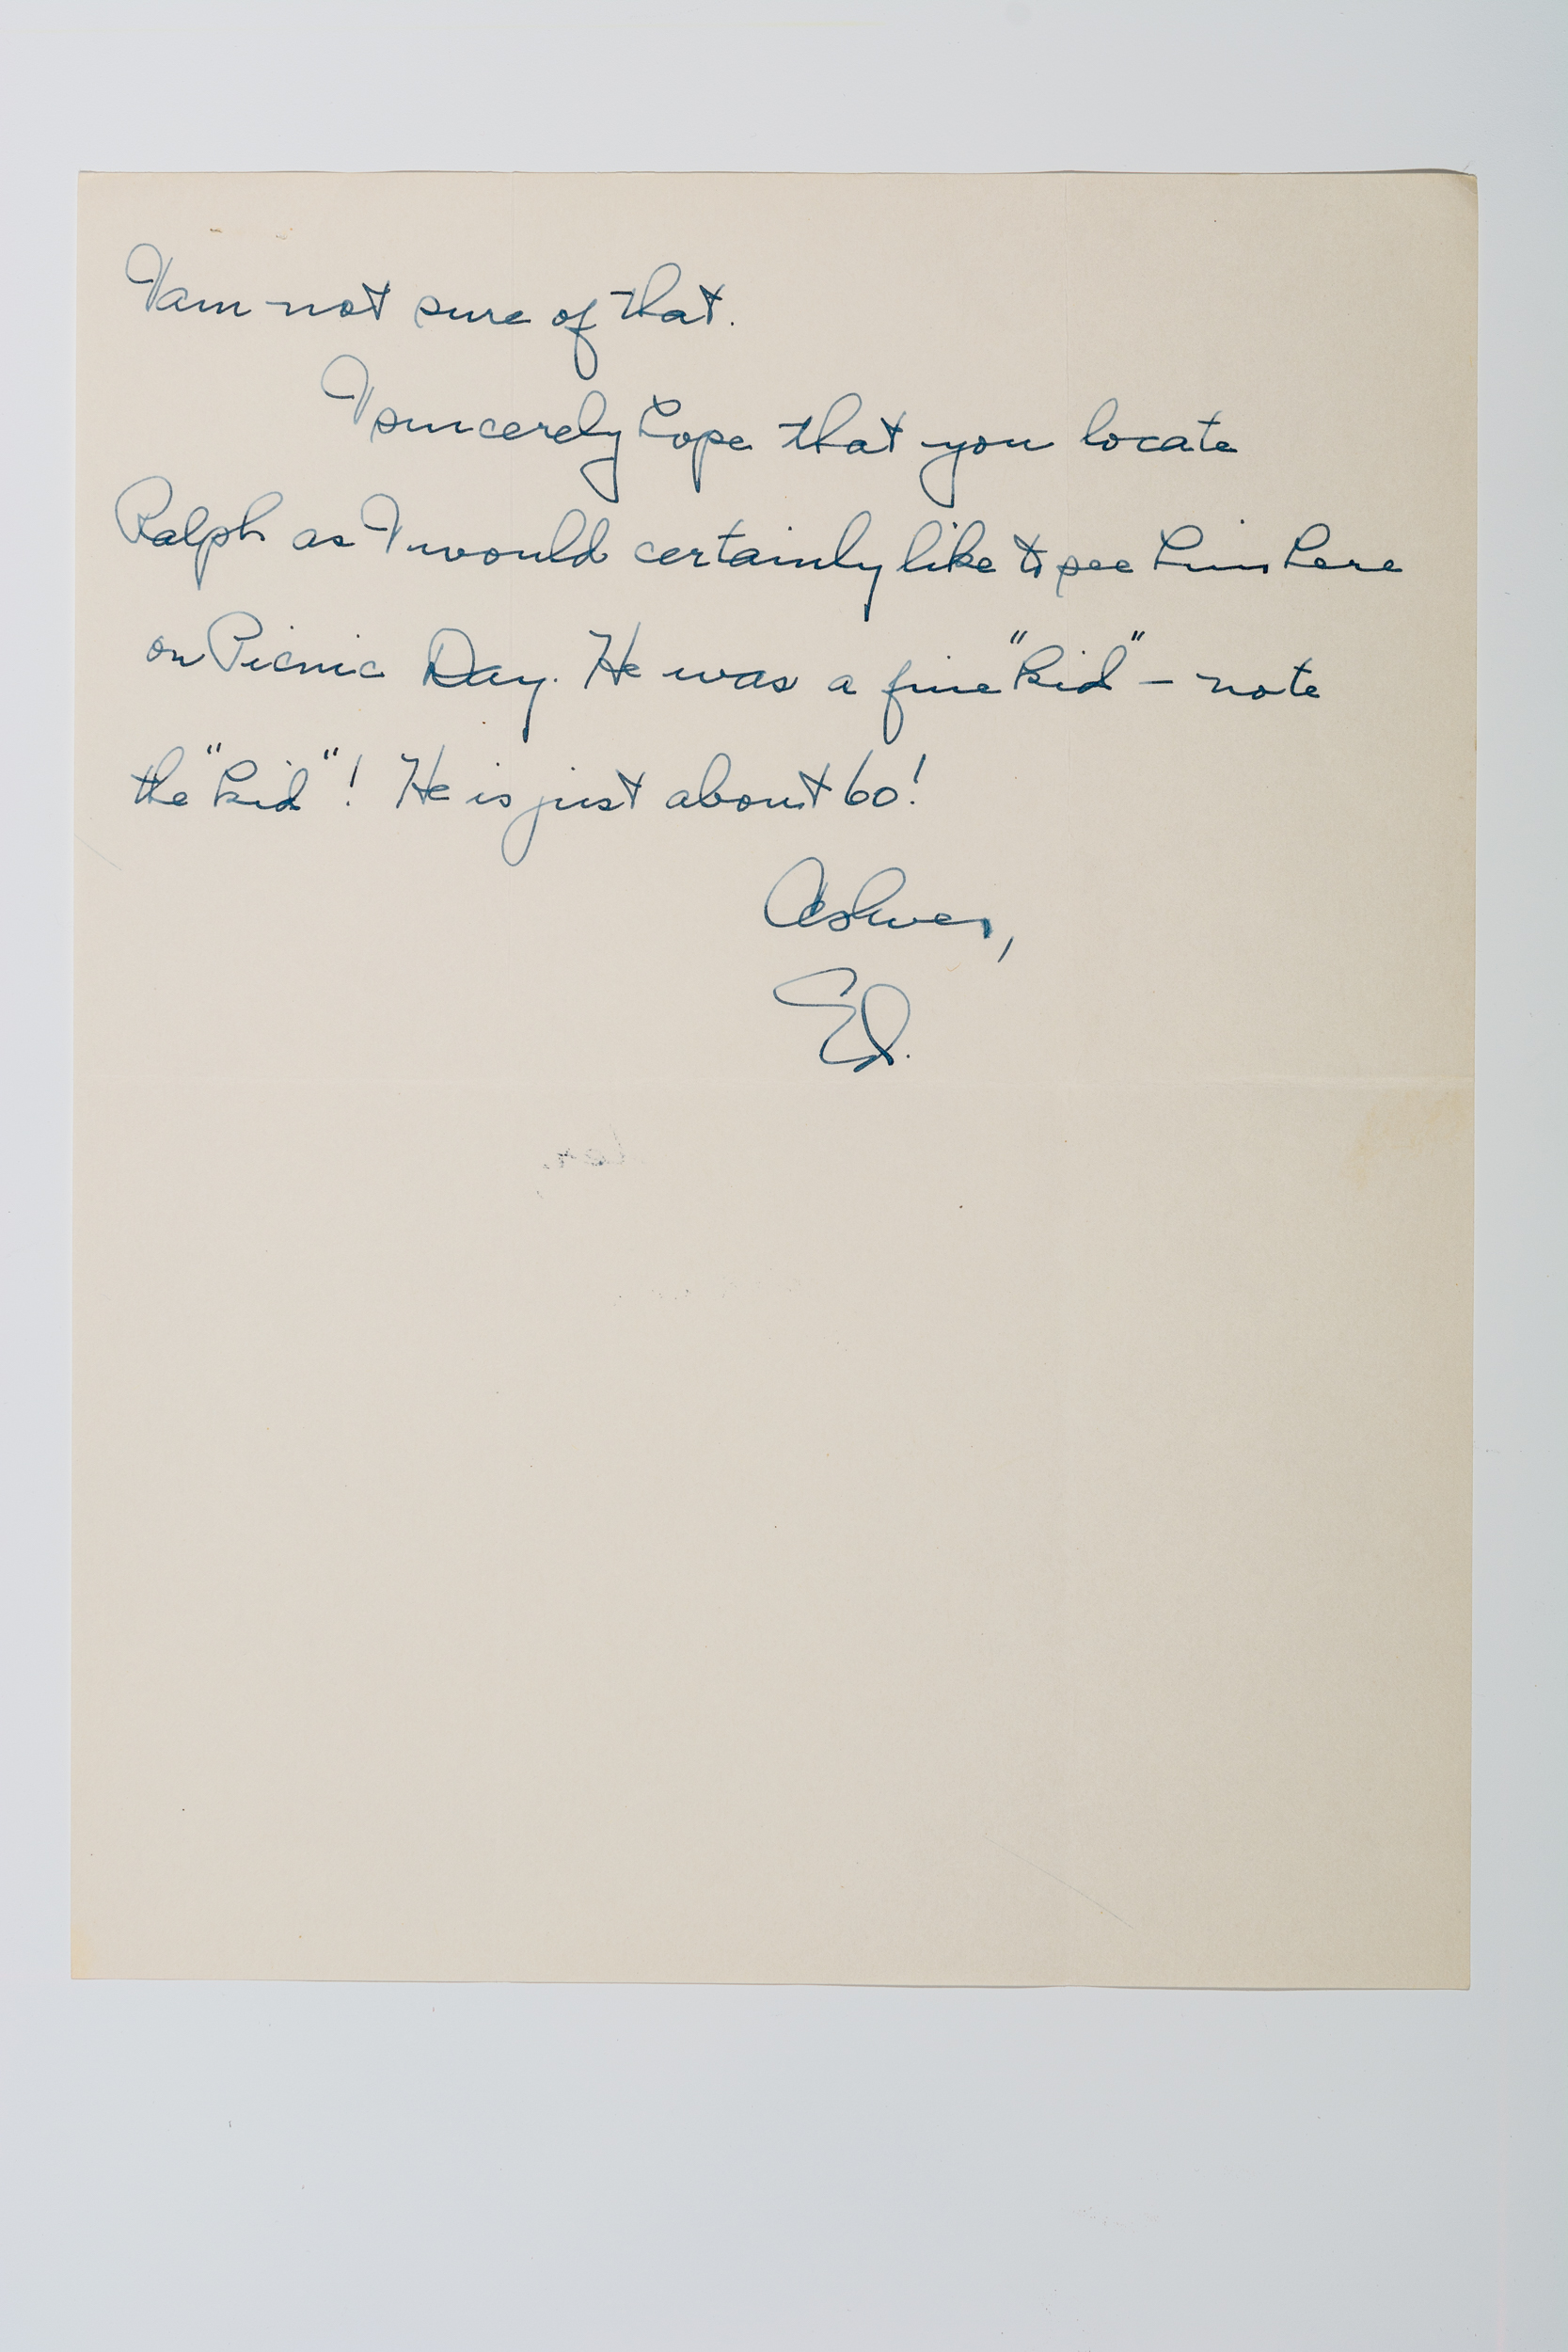 I am not sure of that.
I sincerely hope that you locate
Ralph as I would certainly like to see him here
on Picnic Day. He was a fine "kid" — note
the "kid"! He is just about 60!
As ever,
Ed.